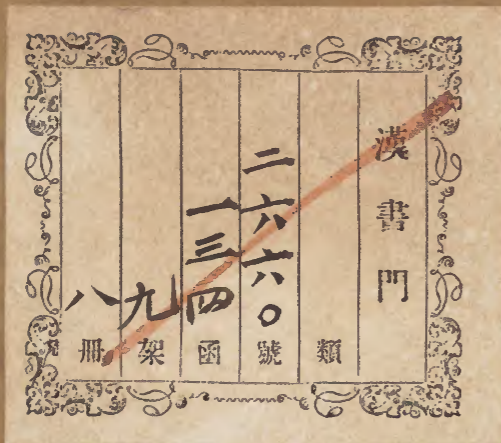 漢書門
類
二六六〇號
一三四函
九架
八冊